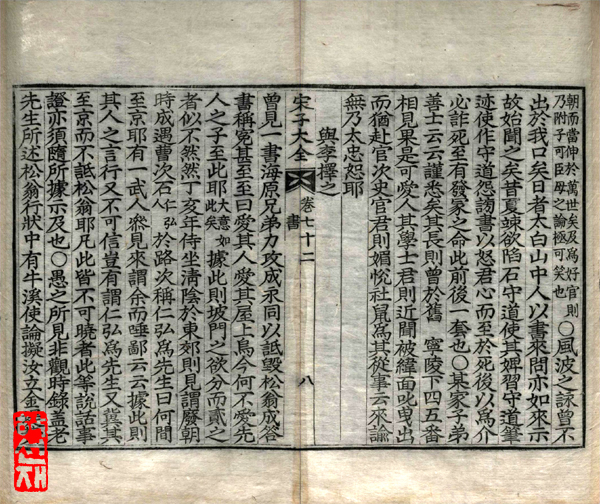 朝而當伸於萬世矣及爲好官則
乃附子可臣母之論極可笑也
○風波之詠曾不
出於我口矣日者太白山中人以書來問亦如來示
故始聞之矣昔夏竦欲陷石守道使其婢習守道筆
迹使作守道怨謗書以怒君心而至於死後以爲介
必詐死至有發冢之命此前後一套也○某家子弟
善士云云謹悉矣其長則曾於舊 寧陵下四五番
相見果是可愛人其學士君則近聞被緯面叱曳出
而猶赴官次史官君則媚悅社鼠爲其從事云來諭
無乃太忠恕耶
與李擇之
宋子大全
卷七十二
書
八
曾見一書海原兄弟力攻成永同以詆毁松翁成答
書稱寃甚至至曰愛其人愛其屋上烏今何不愛先
人之子至此耶
大意如
此矣
據此則坡門之欲分而貳之
者似不然然丁亥年侍坐淸陰於東郊則見謂廢朝
時成遇曹次石
仁弘
於路次稱仁弘爲先生曰何間
至京耶有一武人參見來謂余而唾鄙云云據此則
其人之言行又不可信豈有謂仁弘爲先生又冀其
至京而不詆松翁耶凡此皆不可曉者此等說話事
證亦須隨所據示及也○愚之所見非觀時錄盖老
先生所述松翁行狀中有牛溪使論擬汝立金